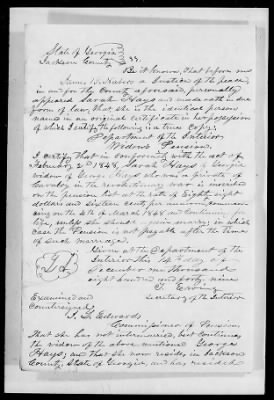 State of Georgia
Jackson County } SS.
Be it known, that before me
James B. a Justice of the peace
in and for the County aforesaid, personally
appeared Sarah Hays and made oath in due
form of law, that she is the identical person
named in an original certificate in her possession
of which I certify the following is a true copy.
Department of the Interior
Widow's Pension.
I certify that in conformity with the act of
February 2d 1848, Sarah Hays a Georgia
widow of George Hays who was a private of
Cavalry in the revolutionary war is inscribed
on the pension list at the rate of Eighty eight
dollars and sixteen cents per annum, commen-
cing on the 4th of March 1848 and Continue for
life, unless she should marry, in which
case the Pension is not payable after the time
of such marriage.
Given at the Department of the
Interior this day of
December one thousand
eight hundred and forty nine
T. Ewing
Secretary of the Interior
Examined and
Countersigned
J. L. Edwards
Commissioner of Pensions
That she has not intermarried, but continues
the widow of the above mentioned George
Hays; and that she now resides in Jackson
County, State of Georgia, and has resided